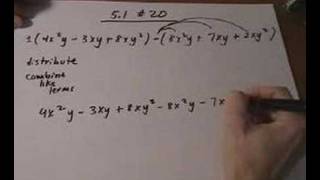 5.1 #20
1(4x²y - 3xy + 8xy²) - (8x²y + 7xy + 2xy²)
distribute
combine
like
terms
4x²y - 3xy + 8xy² - 8x²y - 7x